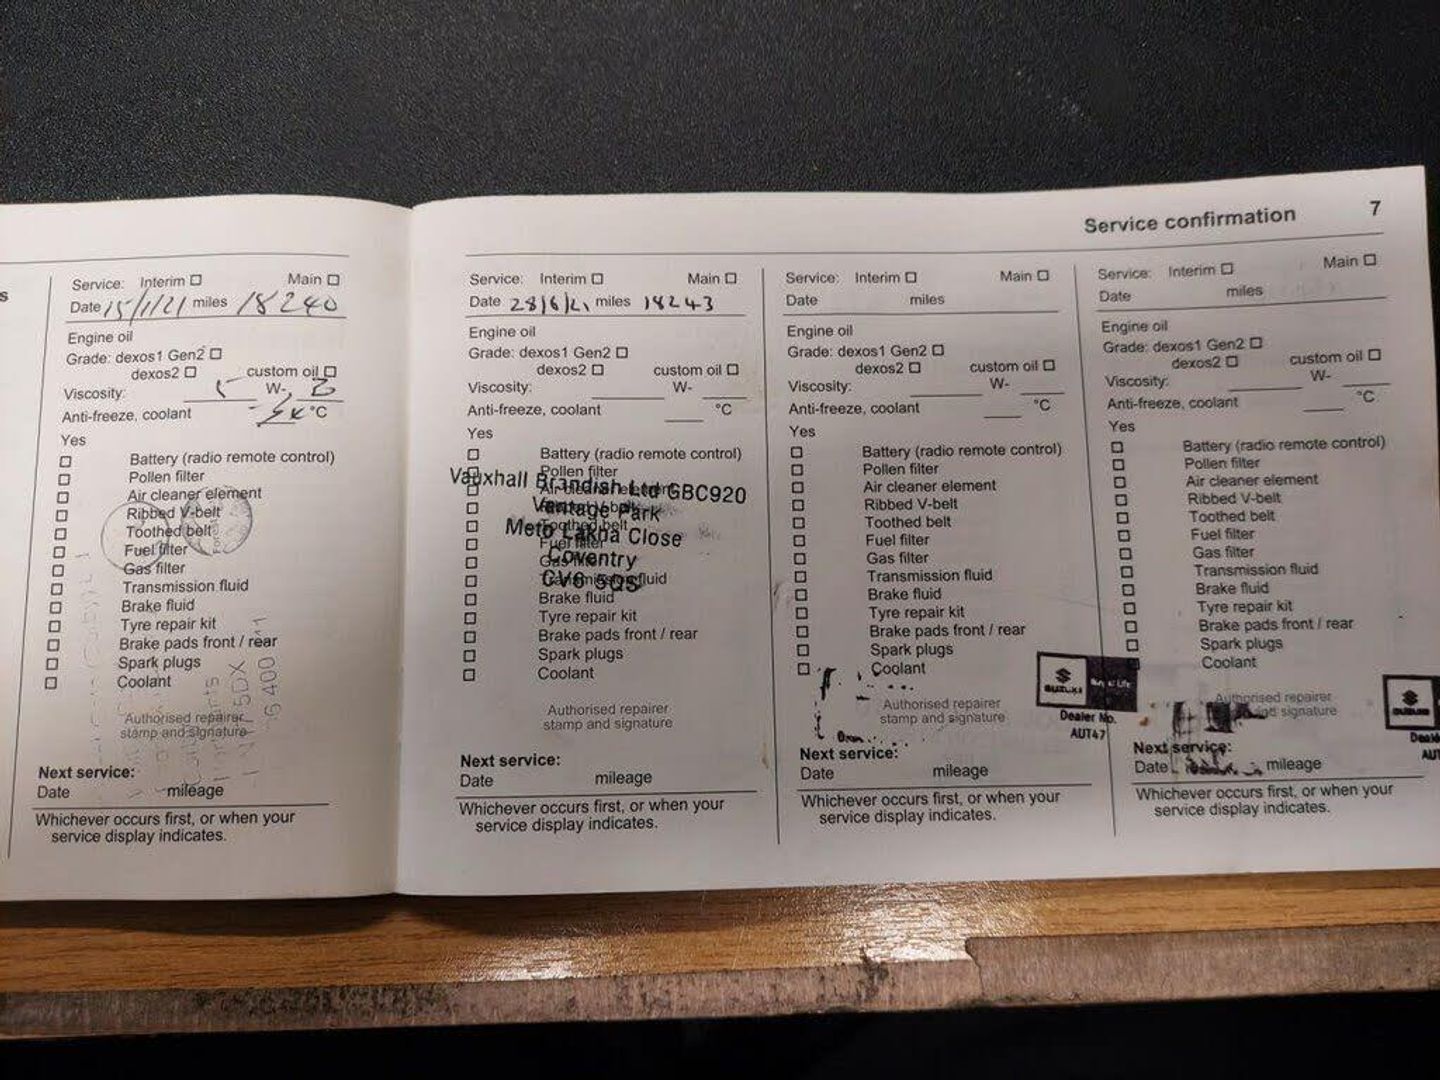 Service confirmation 7
s
Service: Interim Main
Date 15/1/21 miles 18240
Engine oil
Grade: dexos1 Gen2
dexos2 custom oil
Viscosity: W-
Anti-freeze, coolant °C
Yes
Battery (radio remote control)
Pollen filter
Air cleaner element
Ribbed V-belt
Toothed belt
Fuel filter
Gas filter
Transmission fluid
Brake fluid
Tyre repair kit
Brake pads front / rear
Spark plugs
Coolant
5DX
400
Authorised repairer
stamp and signature
Next service:
Date mileage
Whichever occurs first, or when your
service display indicates.
Service: Interim Main
Date 28/6/21 miles 18243
Engine oil
Grade: dexos1 Gen2
dexos2 custom oil
Viscosity: W-
Anti-freeze, coolant °C
Yes
Battery (radio remote control)
Pollen filter
Vauxhall Brandish Ltd GBC920
Air cleaner element
Ribbed V-belt
Vantage Park
Toothed belt
Meto Lakna Close
Fuel filter
Coventry
Gas filter
CV6 5QS
Transmission fluid
Brake fluid
Tyre repair kit
Brake pads front / rear
Spark plugs
Coolant
Authorised repairer
stamp and signature
Next service:
Date mileage
Whichever occurs first, or when your
service display indicates.
Service: Interim Main
Date miles
Engine oil
Grade: dexos1 Gen2
dexos2 custom oil
Viscosity: W-
Anti-freeze, coolant °C
Yes
Battery (radio remote control)
Pollen filter
Air cleaner element
Ribbed V-belt
Toothed belt
Fuel filter
Gas filter
Transmission fluid
Brake fluid
Tyre repair kit
Brake pads front / rear
Spark plugs
Coolant
Authorised repairer
stamp and signature
SUZUKI
Dealer No.
AUT47
Next service:
Date mileage
Whichever occurs first, or when your
service display indicates.
Service: Interim Main
Date miles
Engine oil
Grade: dexos1 Gen2
dexos2 custom oil
Viscosity: W-
Anti-freeze, coolant °C
Yes
Battery (radio remote control)
Pollen filter
Air cleaner element
Ribbed V-belt
Toothed belt
Fuel filter
Gas filter
Transmission fluid
Brake fluid
Tyre repair kit
Brake pads front / rear
Spark plugs
Coolant
Authorised repairer
and signature
SUZUKI
AUT
Next service:
Date mileage
Whichever occurs first, or when your
service display indicates.